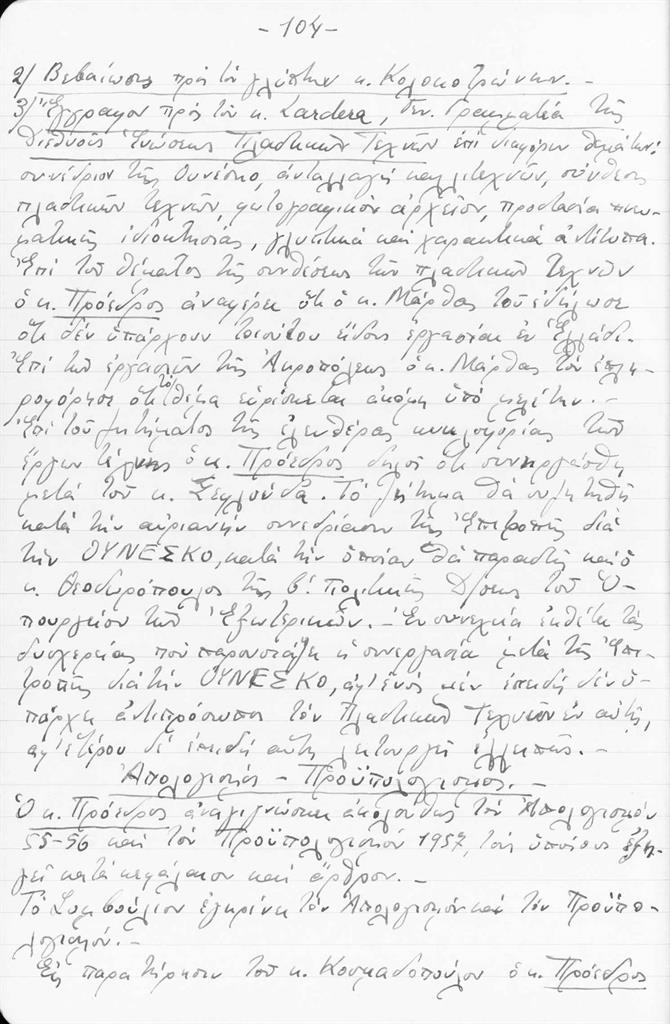 - 104 -
2/ Βεβαίωσις πρὸς τὸν γλύπτην κ. Κολοκοτρώνην. –
3/ Ἔγγραφον πρὸς τὸν κ. Lardera, Γεν. Γραμματέα τῆς
Διεθνοῦς Ἑνώσεως Πλαστικῶν Τεχνῶν ἐπὶ διαφόρων θεμάτων:
συνέδριον τῆς Ουνέσκο, ἀνταλλαγὴ καλλιτεχνῶν, σύνθεσις
πλαστικῶν τεχνῶν, φωτογραφικὸν ἀρχεῖον, προστασία πνευ-
ματικῆς ἰδιοκτησίας, γλυπτικὰ καὶ χαρακτικὰ ἀντίτυπα.
Ἐπὶ τοῦ θέματος τῆς συνθέσεως τῶν πλαστικῶν τεχνῶν
ὁ κ. Πρόεδρος ἀναφέρει ὅτι ὁ κ. Μάρθας τοῦ ἐδήλωσε
ὅτι δὲν ὑπάρχουν τοιούτου εἴδους ἐργασίαι ἐν Ἑλλάδι.
Ἐπὶ τῶν ἐργασιῶν τῆς Ἀκροπόλεως ὁ κ. Μάρθας τὸν ἐπλη-
ροφόρησε ὅτι τὸ θέμα εὑρίσκεται ἀκόμη ὑπὸ μελέτην. –
Ἐπὶ τοῦ ζητήματος τῆς ἐλευθέρας κυκλοφορίας τῶν
ἔργων τέχνης ὁ κ. Πρόεδρος δηλοῖ ὅτι συνηργάσθη
μετὰ τοῦ κ. Ξεφλούδα. Τὸ ζήτημα θὰ συζητηθῆ
κατὰ τὴν αὐριανὴν συνεδρίασιν τῆς Ἐπιτροπῆς διὰ
τὴν ΟΥΝΕΣΚΟ, κατὰ τὴν ὁποίαν θὰ παραστῆ καὶ ὁ
κ. Θεοδωρόπουλος τῆς β'. πολιτικῆς Δ/σεως τοῦ Ὑ-
πουργείου τῶν Ἐξωτερικῶν. – Ἐν συνεχεία ἐκθέτει τὰς
δυσχερείας ποὺ παρουσιάζει ἡ συνεργασία μετὰ τῆς Ἐπι-
τροπῆς διὰ τὴν ΟΥΝΕΣΚΟ, ἀφ' ἑνὸς μὲν ἐπειδὴ δὲν ὑ-
πάρχει ἀντιπρόσωπος τῶν Πλαστικῶν Τεχνῶν ἐν αὐτῆ,
ἀφ' ἑτέρου δὲ ἐπειδὴ αὕτη λειτουργεῖ ἐλλειπῶς. –
Ἀπολογισμός – Προϋπολογισμός. –
Ὁ κ. Πρόεδρος ἀναγιγνώσκει ἀκολούθως τὸν Ἀπολογισμὸν
55-56 καὶ τὸν Προϋπολογισμὸν 1957, τοὺς ὁποίους ἐξη-
γεῖ κατὰ κεφάλαιον καὶ ἄρθρον. –
Τὸ Συμβούλιον ἐγκρίνει τὸν Ἀπολογισμὸν καὶ τὸν Προϋπο-
λογισμόν. –
Εἰς παρατήρησιν τοῦ κ. Κοσμαδοπούλου ὁ κ. Πρόεδρος